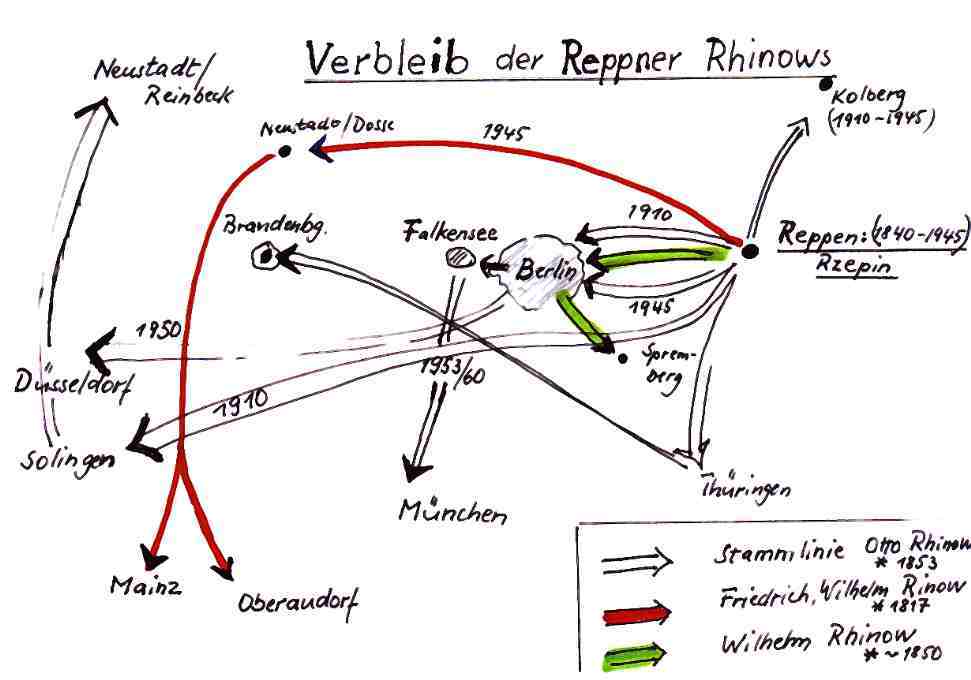 Verbleib der Reppner Rhinows
Neustadt/
Reinbeck
Kolberg
(1910-1945)
Neustadt/Dosse
1945
Brandenbg.
Falkensee
1910
Berlin
Reppen:(1840-1945)
Rzepin
1945
1950
Düsseldorf
1953/60
Sprem-
berg
1910
Solingen
München
Thüringen
Mainz
Oberaudorf
Stammlinie Otto Rhinow
* 1853
Friedrich, Wilhelm Rinow
* 1817
Wilhelm Rhinow
* ~ 1850